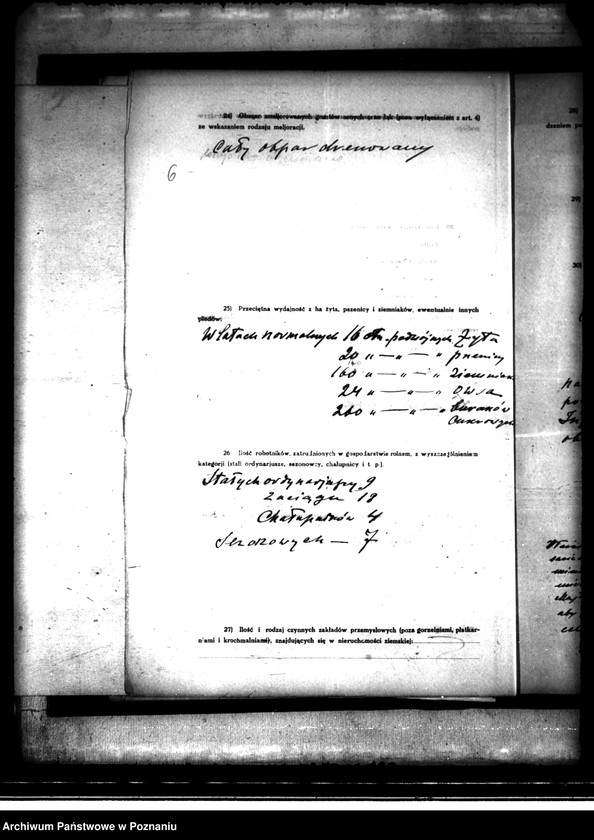 24) Obszar zmeljorowanych gruntów ornych oraz łąk (poza wyłączeniem z art. 4)
ze wskazaniem rodzaju meljoracji.
Cały obszar drenowany
6
25) Przeciętna wydajność z ha żyta, pszenicy i ziemniaków, ewentualnie innych
płodów:
W latach normalnych 16 ctn. podwójnych żyta
20 " — " — " pszenicy
160 " — " — " ziemniak
24 " — " — " owsa
260 " — " — " Buraków
Cukrowych
26 Ilość robotników, zatrudnionych w gospodarstwie rolnem, z wyszczególnieniem
kategorji (stali ordynarjusze, sezonowcy, chałupnicy i t. p.).
Stałych ordynarjuszy 9
Zaciągu 18
Chałupników 4
Sezonowych — 7
27) Ilość i rodzaj czynnych zakładów przemysłowych (poza gorzelniami, płatkar-
niami i krochmalniami), znajdujących się w nieruchomości ziemskiej:
28)
dzeniem
29)
30)
Archiwum Państwowe w Poznaniu